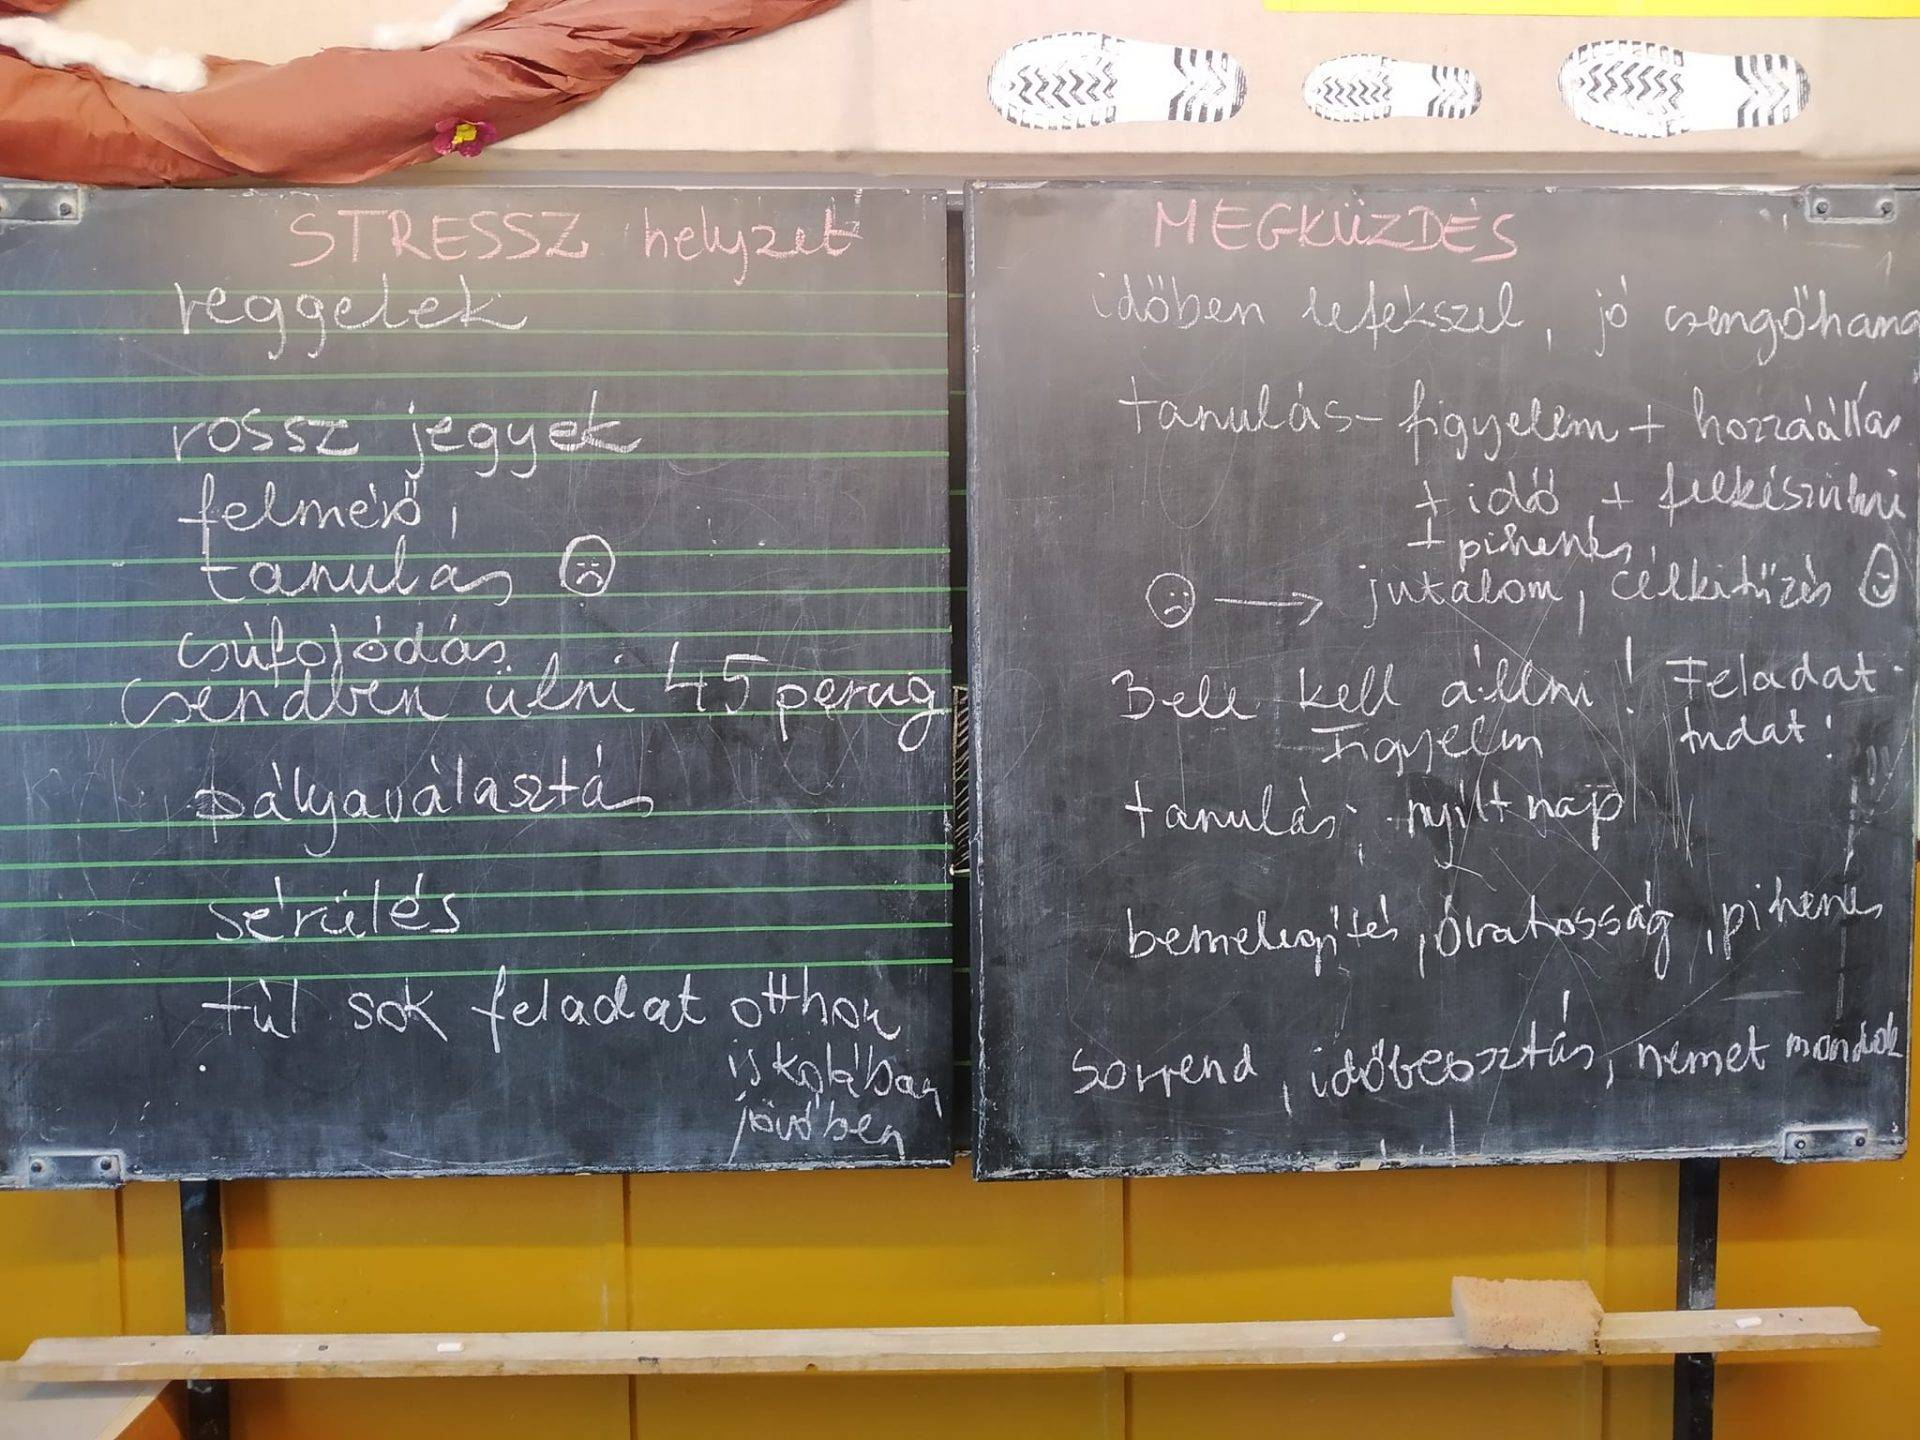 STRESSZ helyzet
reggelek
rossz jegyek
felmérő,
tanulás
csúfolódás
csendben ülni 45 percig
pályaválasztás
sérülés
túl sok feladat otthon
iskolában
jövőben
MEGKÜZDÉS
időben lefekszel, jó csengőhang
tanulás - figyelem + hozzáállás
+ idő + felkészülni
+ pihenés
→ jutalom, célkitűzés
Bele kell állni! Feladat-
Figyelem tudat!
tanulás; nyílt nap
bemelegítés, óvatosság, pihenés
sorrend, időbeosztás, nemet mondok